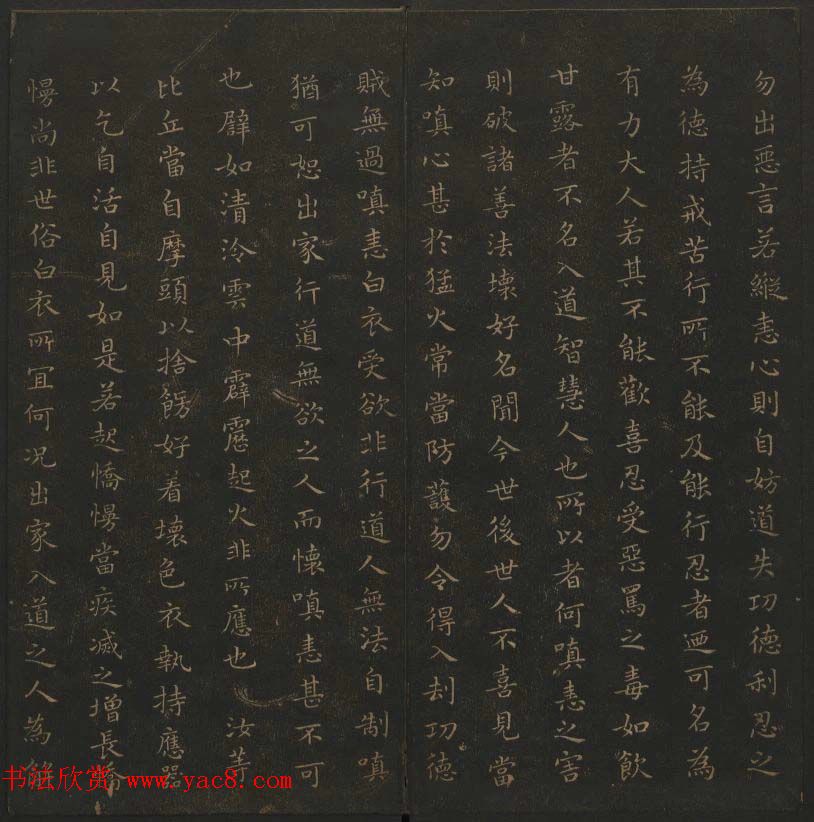 勿出惡言若縱恚心則自妨道失功德利忍之
為德持戒苦行所不能及能行忍者迺可名為
有力大人若其不能歡喜忍受惡罵之毒如飲
甘露者不名入道智慧人也所以者何嗔恚之害
則破諸善法壞好名聞今世後世人不喜見當
知嗔心甚於猛火常當防護勿令得入刦功德
賊無過嗔恚白衣受欲非行道人無法自制嗔
猶可恕出家行道無欲之人而懷嗔恚甚不可
也譬如清泠雲中霹靂起火非所應也 汝等
比丘當自摩頭以捨餝好着壞色衣執持應器
以乞自活自見如是若起憍慢當疾滅之增長憍
慢尚非世俗白衣所冝何况出家入道之人為解
书法欣赏 www.yac8.com